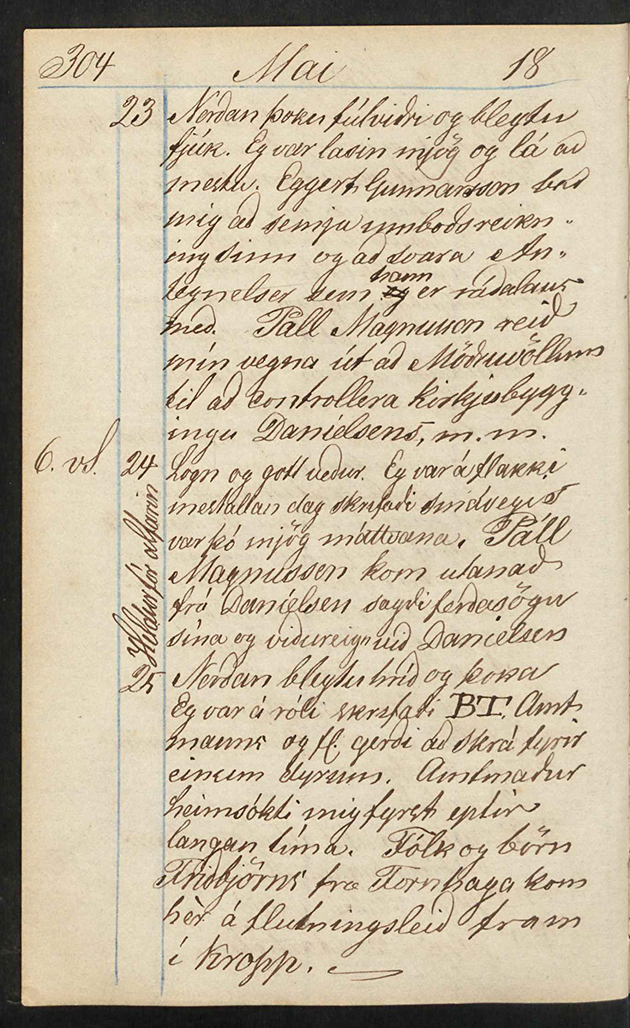 304 Mai 18
23 Norðan þoku fúlviðri og bleytu
fjúk. Eg var lasin mjög og lá að
mestu. Eggert Gunnarsson bað
mig að semja umboðsreikn-
ing sinn og að svara An-
tegnelser sem hann er ráðalaus
með. Páll Magnusson reið
mín vegna út að Möðruvöllum
til að controllera kirkjubygg-
ingu Danielsens, m. m.
6. vs. 24 Logn og gott veður. Eg var á flakki
mestallan dag skrifaði sendveginn
var þó mjög máttvana. Páll
Magnussen kom utanað
frá Danielsen sagði ferðasögu
sína og viðureign við Danielsen
Heldur fór alfarin
25 Norðan bleytu hríð og þoka
Eg var á róli skrifaði BT. Amt-
manns og fl. gerði að skrá fyrir
einum dyrum. Amtmaður
heimsókti mig fyrst eptir
langan tíma. Fólk og börn
Friðbjörns frá Fornhaga kom
hèr á flutningsleið fram
í Kropp.